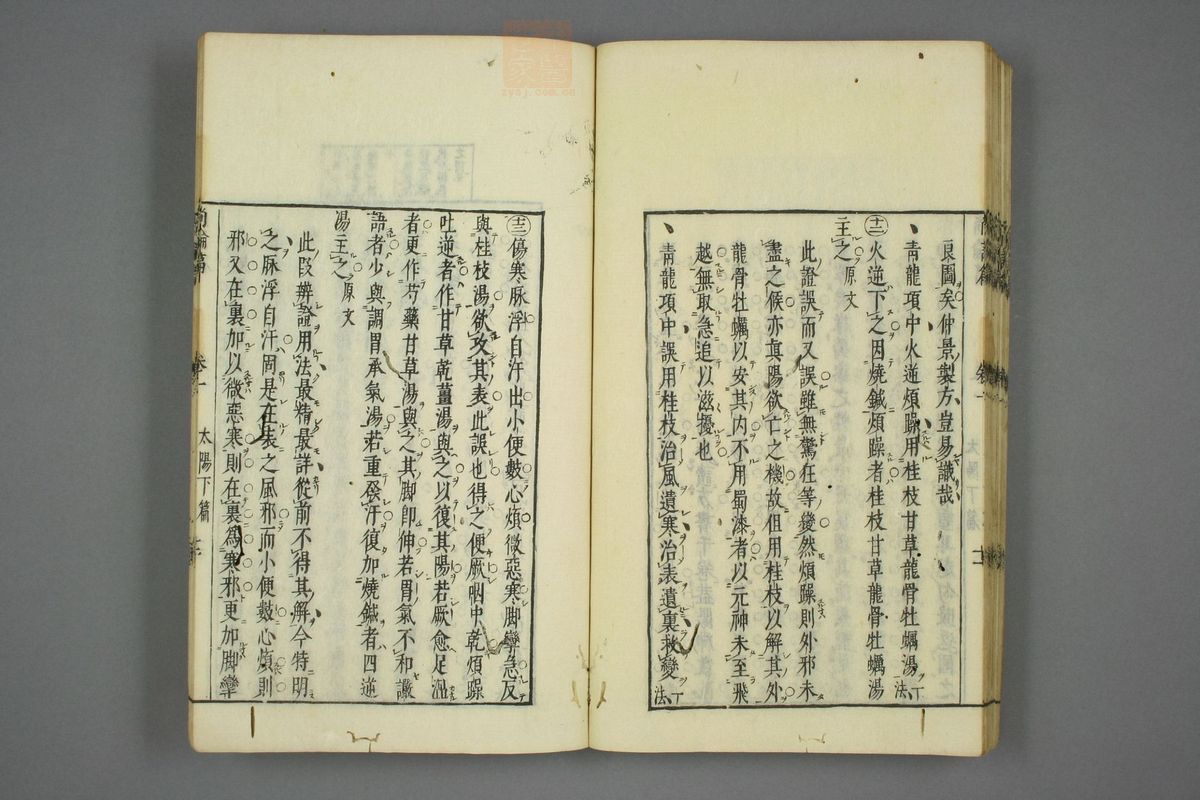 良圖矣仲景製方豈易識哉
青龍項中火逆煩躁用桂枝甘草龍骨牡蠣湯法
十二火逆下之因燒鍼煩躁者桂枝甘草龍骨牡蠣湯
主之原文
此證誤而又誤雖無驚狂等變然煩躁則外邪未
盡之候亦真陽欲亡之機故但用桂枝以解其外
龍骨牡蠣以安其内不用蜀漆者以元神未至飛
越無取急追以滋擾也
青龍項中誤用桂枝治風遺寒治表遺裏救變法
十三傷寒脉浮自汗出小便數心煩微惡寒脚攣急反
與桂枝湯欲攻其表此誤也得之便厥咽中乾煩躁
吐逆者作甘草乾薑湯與之以復其陽若厥愈足溫
者更作芍藥甘草湯與之其脚即伸若胃氣不和讝
語者少與調胃承氣湯若重發汗復加燒鍼者四逆
湯主之原文
此段辨證用法最精最詳從前不得其解今特明
之脉浮自汗固是在表之風邪而小便數心煩則
邪又在裏加以微惡寒則在裏爲寒邪更加脚攣
尚論篇 卷一 太陽下篇
zysj.com.cn